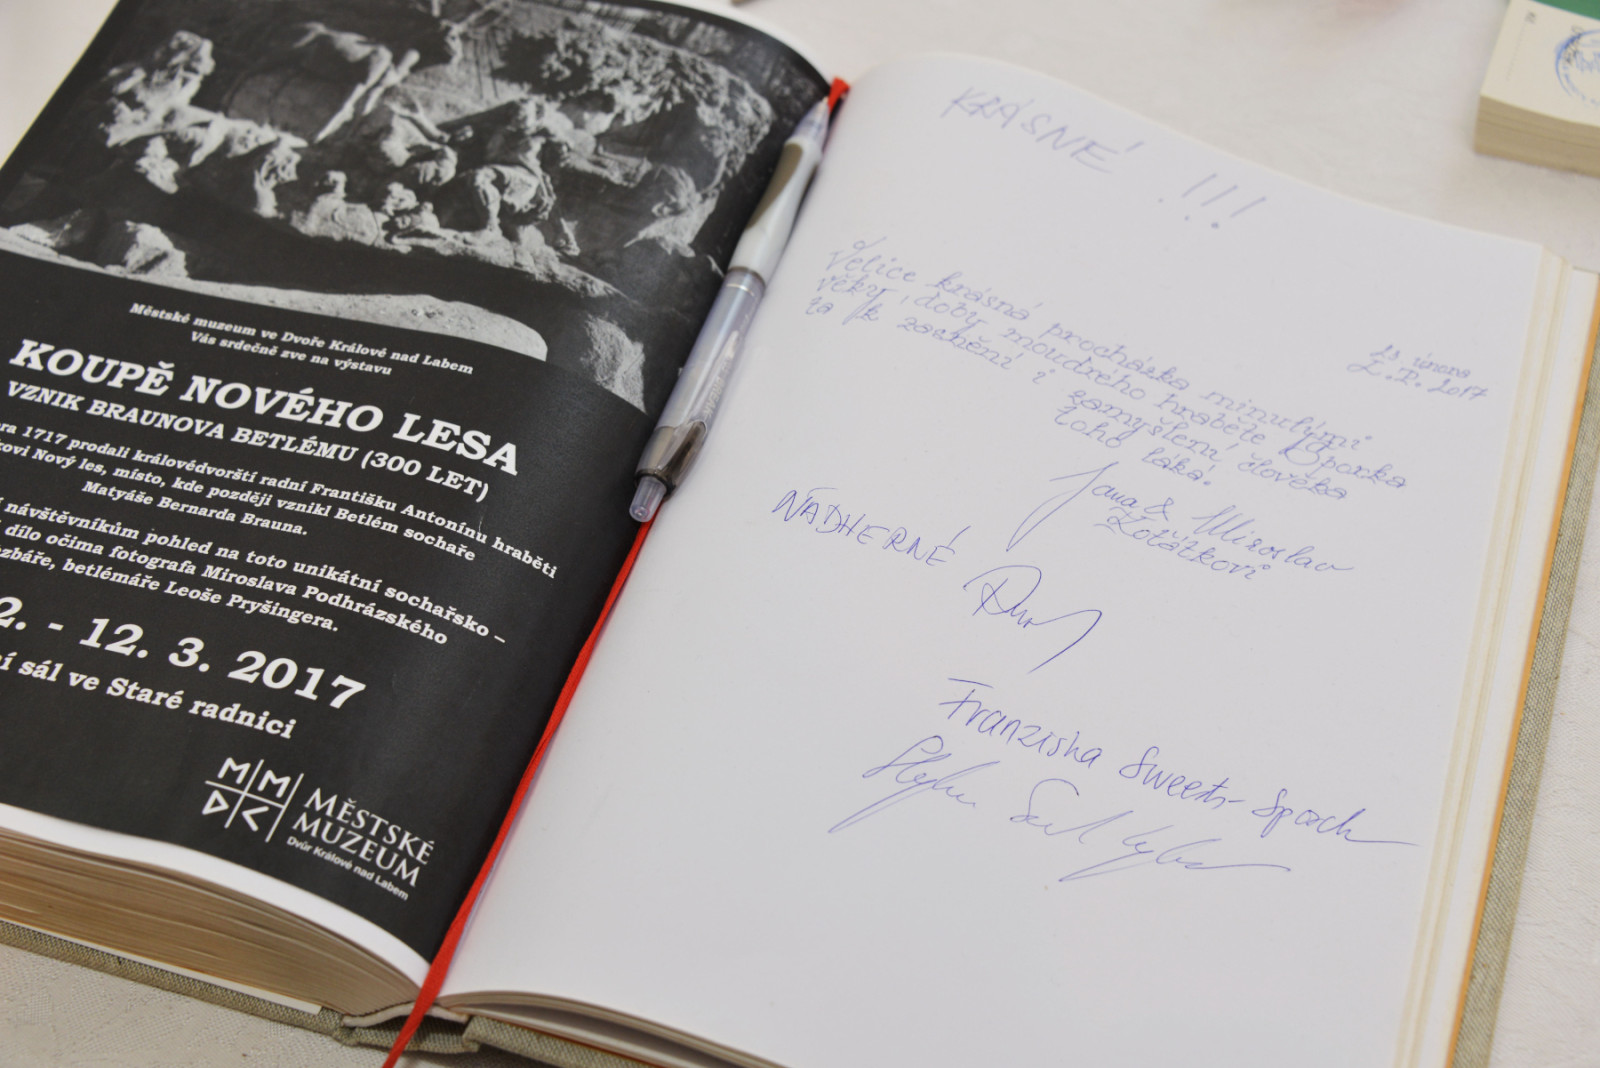 Městské muzeum ve Dvoře Králové nad Labem
Vás srdečně zve na výstavu
KOUPĚ NOVÉHO LESA
VZNIK BRAUNOVA BETLÉMU (300 LET)
ra 1717 prodali královédvorští radní Františku Antonínu hraběti
kovi Nový les, místo, kde později vznikl Betlém sochaře
Matyáše Bernarda Brauna.
návštěvníkům pohled na toto unikátní sochařsko –
dílo očima fotografa Miroslava Podhrázského
zbáře, betlémáře Leoše Pryšingera.
2. - 12. 3. 2017
ní sál ve Staré radnici
MM
DC
MĚSTSKÉ
MUZEUM
Dvůr Králové nad Labem
KRÁSNÉ !!!
13. února
L.P. 2017
Velice krásná procházka minulými
věky, doby moudrého hraběte Sporka
za k zamyšlení člověka
toho láká.
Jana & Miroslav
Koťátkovi
NÁDHERNÉ
Franziska Sweerts-Sporck